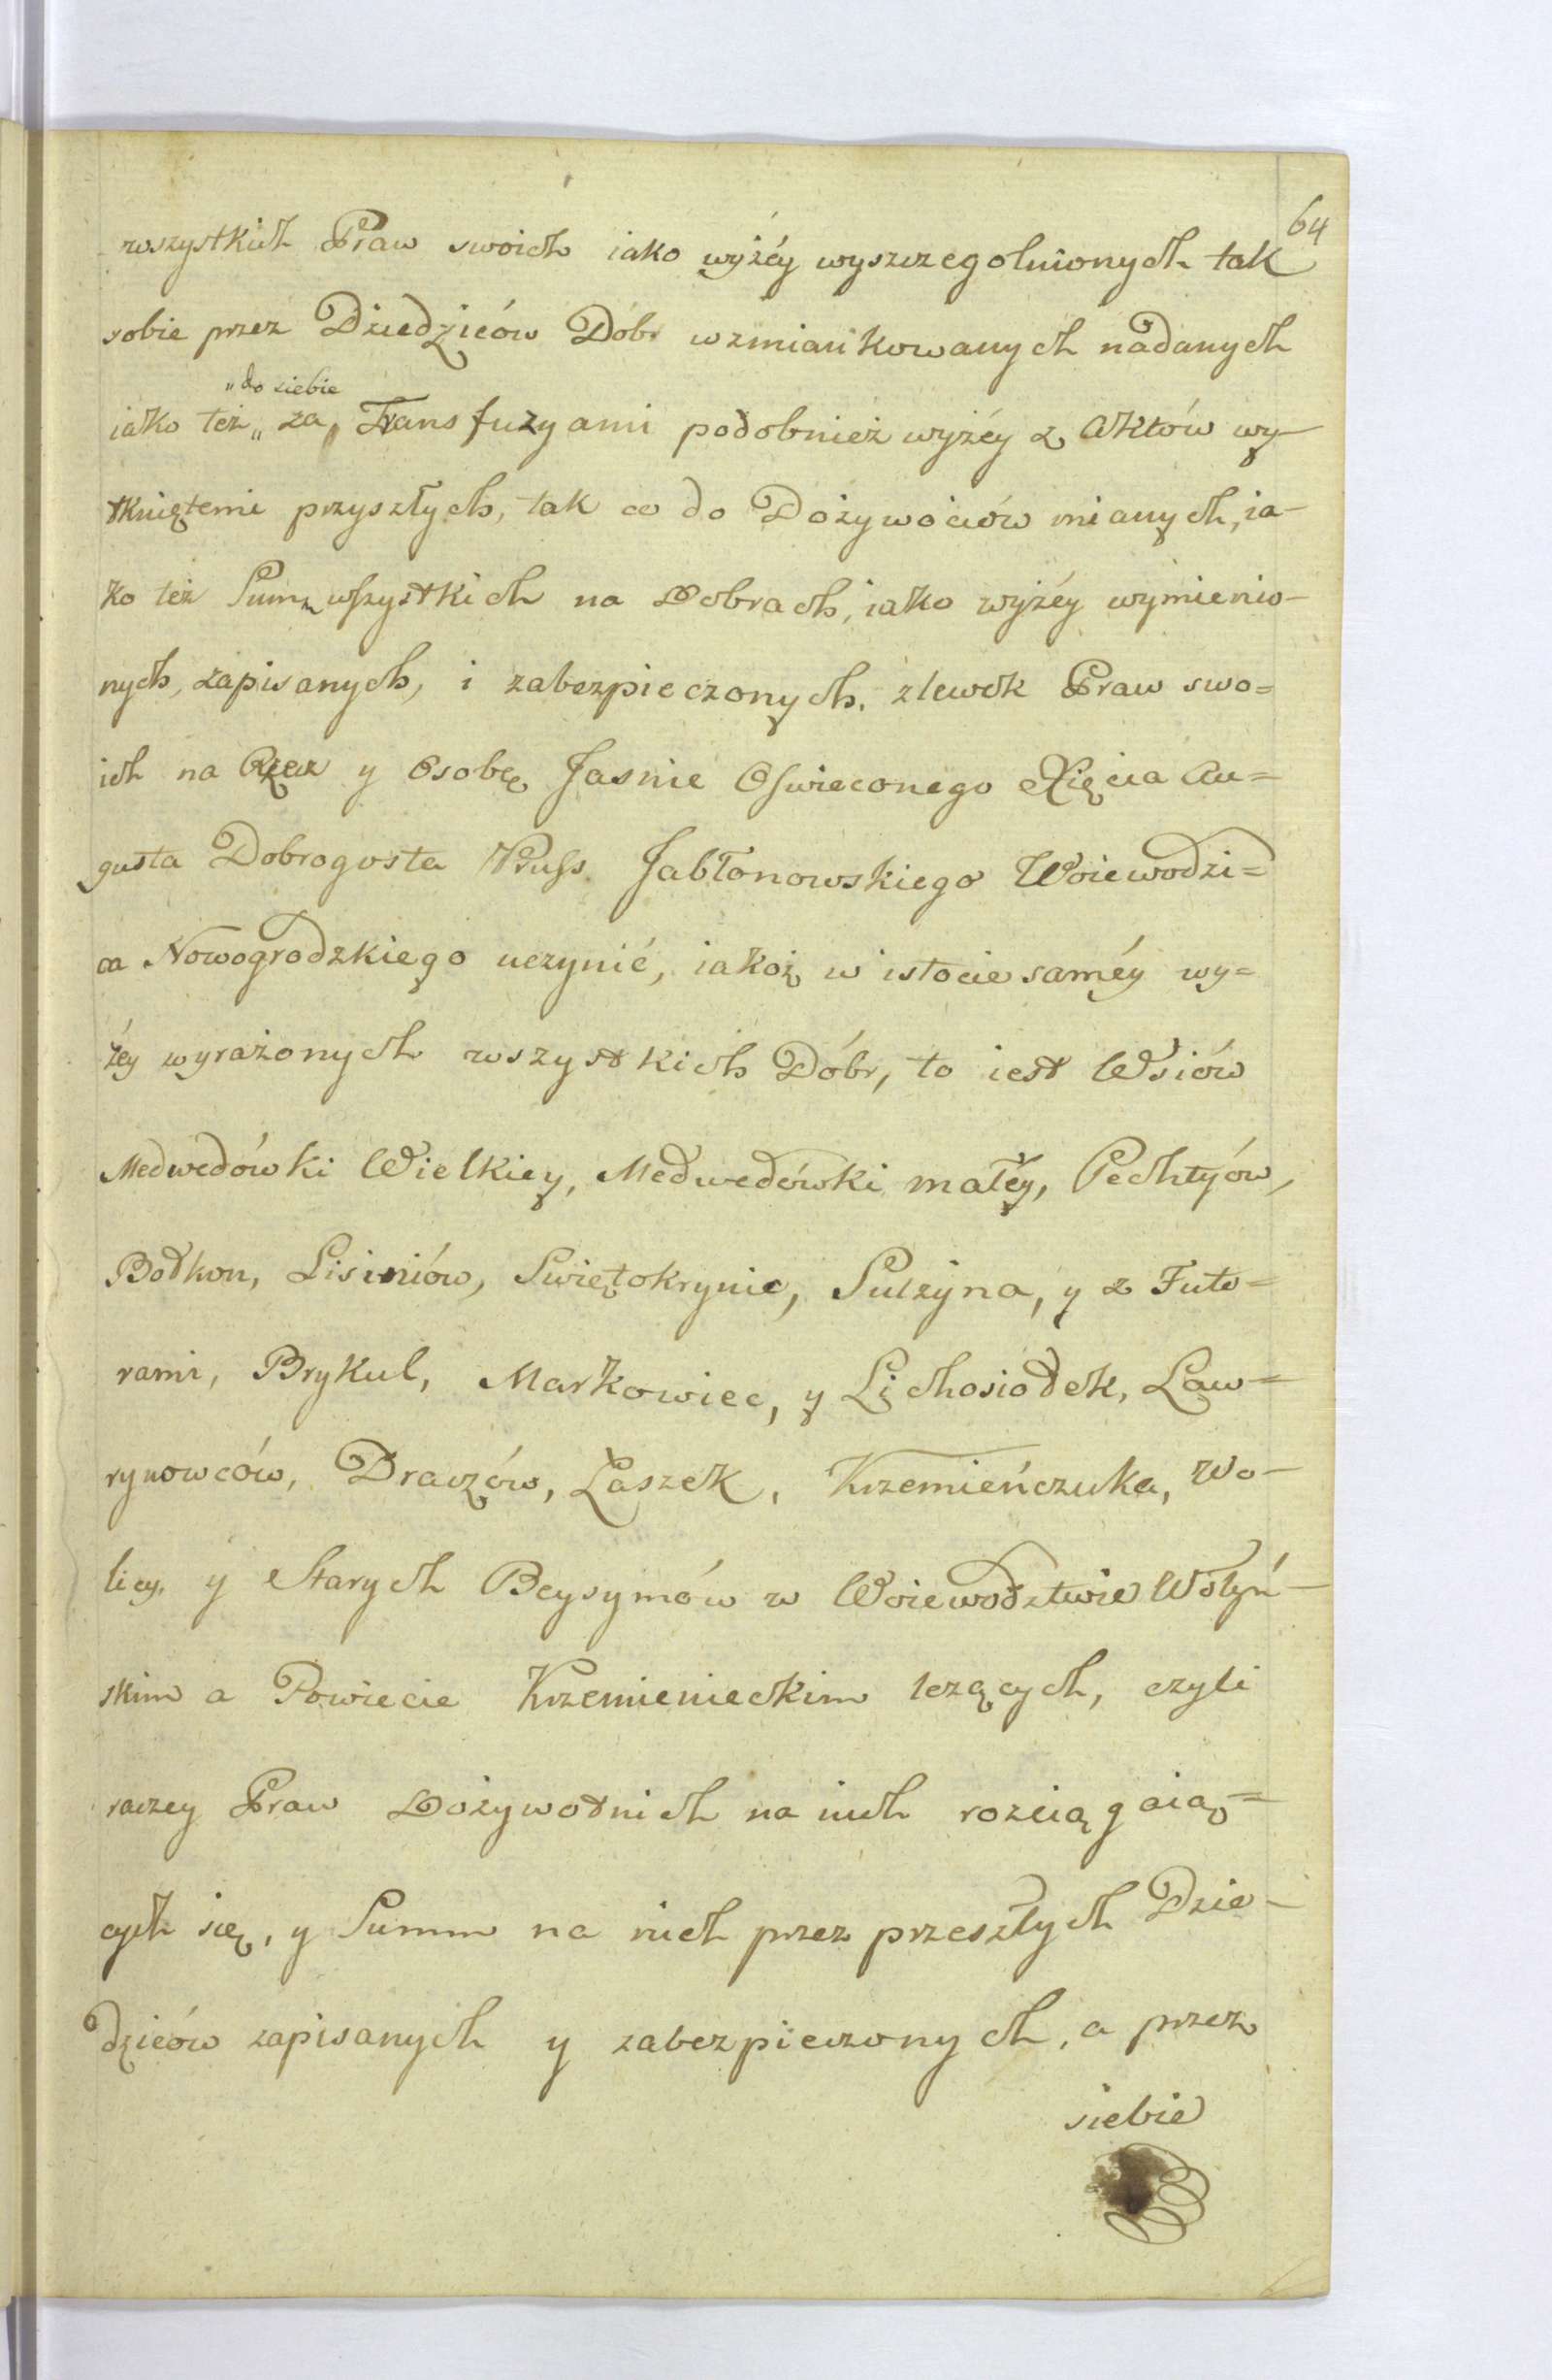 64
wszystkich Praw swoich iako wyżéy wyszczegolnionych tak
sobie przez Dziedziców Dóbr wzmiankowanych nadanych
„do siebie
iako też „ za Transfuzyami podobnież wyżéy z Aktów wy-
tkniętemi przyszłych, tak co do Dożywociów mianych, ia-
ko też Summ wszystkich na Dobrach, iako wyżéy wymienio-
nych, zapisanych, i zabezpieczonych, zlewek Praw swo=
ich na Rzecz y Osobę Jasnie Oswieconego Xięcia Au=
gusta Dobrogosta Pruss Jabłonowskiego Woiewodzi=
ca Nowogrodzkiego uczynić, iakoż w istocie saméy wy=
żéy wyrażonych wszystkich Dóbr, to iest Wsiów
Medwedówki Wielkiey, Medwedówki małéy, Pechtyów,
Bodkon, Lisiniów, Swiętokrynic, Sulzyna, y z Futo=
rami, Brykul, Markowiec, y Lichosiodek, Law=
rynowców, Draczów, Laszek, Krzemieńczuka, Wo-
licy, y Starych Beysymów w Woiewodztwie Wołyń-
skim a Powiecie Krzemienieckim leżących, czyli
raczey Praw Dożywotnich na nich rozciągaią=
cych się, y Summ na nich przez przeszłych Dzie-
dziców zapisanych y zabezpieczonych, a przez
siebie